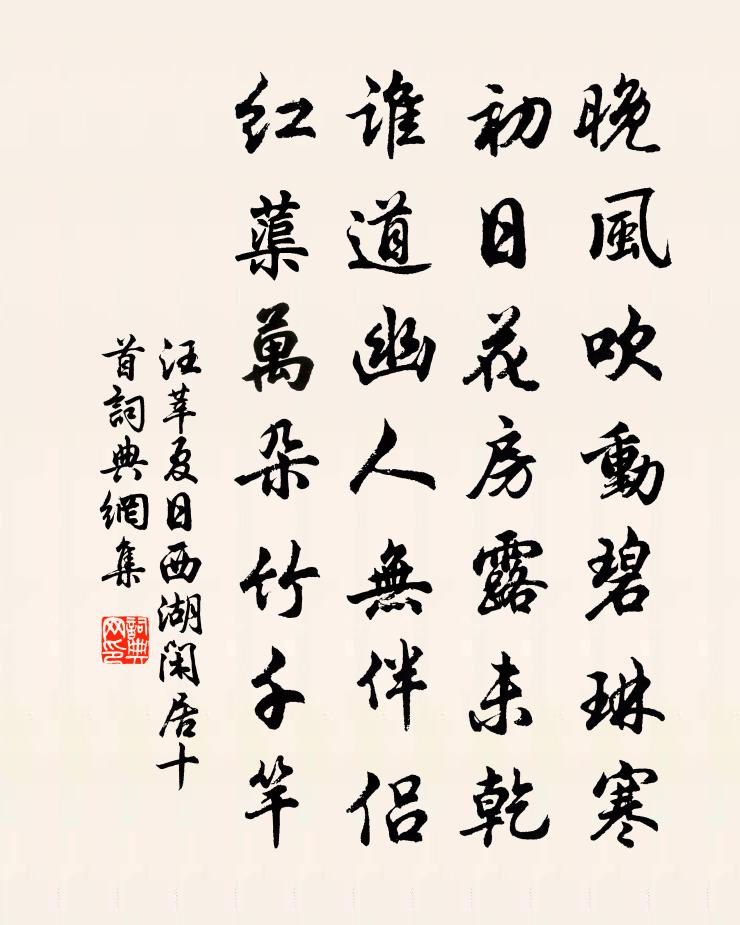 晚風吹動碧琳寒
初日花房露未乾
誰道幽人無伴侣
红蕖萬朵竹千竿
汪莘夏日西湖闲居十
首詞典網集
詞典网印